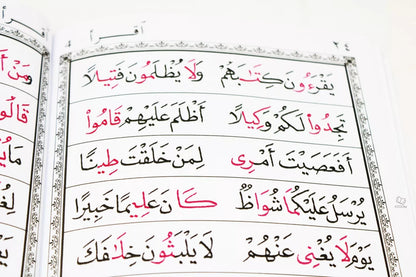 اقرأ ٤
٢٤
يَقْرَءُونَ كِتَٰبَهُمْ وَلَا يُظْلَمُونَ فَتِيلًا
تَجِدُوا۟ لَكُمْ وَكِيلًا أَظْلَمَ عَلَيْهِمْ قَامُوا۟
أَفَعَصَيْتَ أَمْرِى لِمَنْ خَلَقْتَ طِينًا
يُرْسَلُ عَلَيْكُمَا شُوَاظٌ كَانَ عَلِيمًا خَبِيرًا
يَوْمَ لَا يُغْنِى عَنْهُمْ لَا يَلْبَثُونَ خِلَٰفَكَ